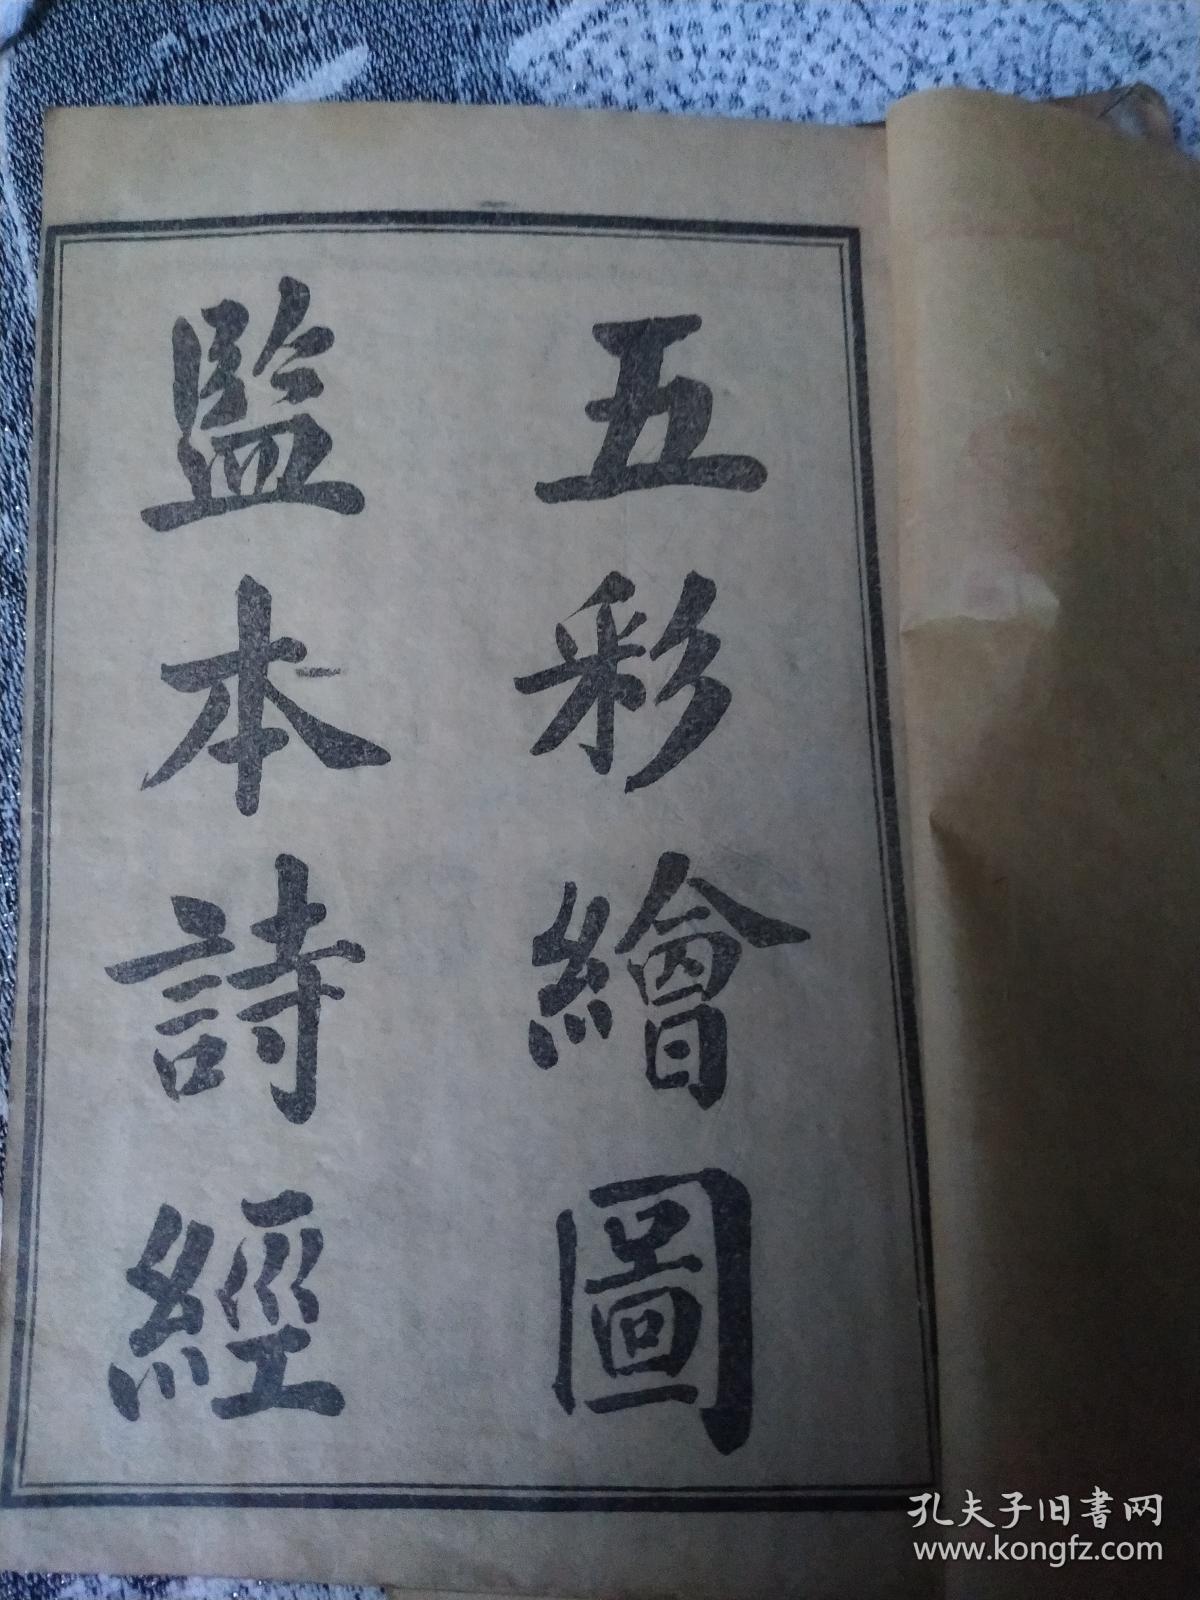 五彩繪圖
監本詩經
孔夫子旧書网
www.kongfz.com